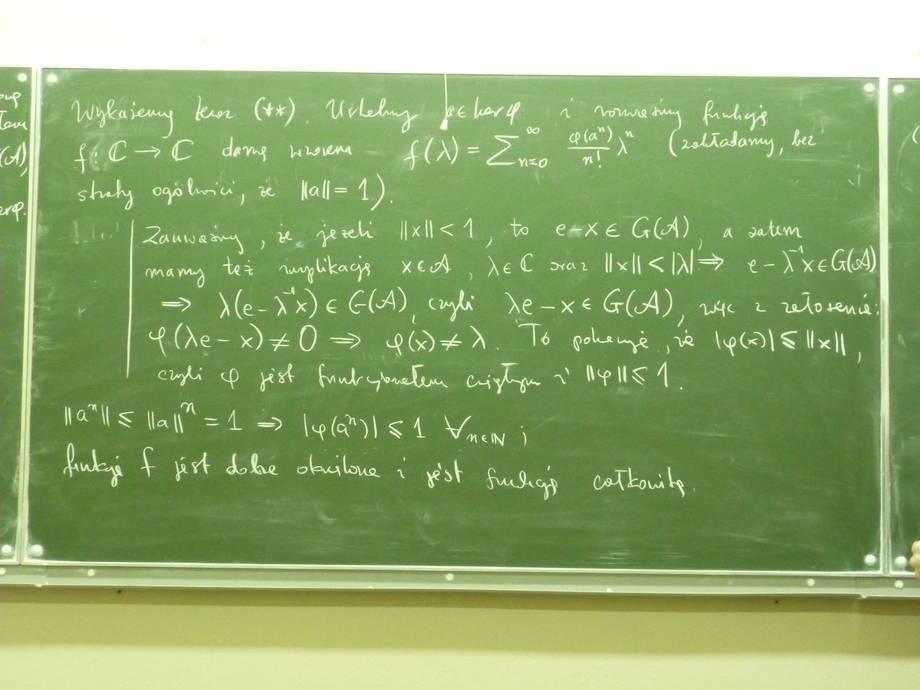 Wykażemy teraz (**). Ustalmy a∈ker φ i rozważmy funkcję
f: ℂ → ℂ daną wzorem f(λ) = ∑_{n=0}^{∞} φ(aⁿ)/n! λⁿ (zakładamy, bez
straty ogólności, że ‖a‖ = 1).
Zauważmy, że jeżeli ‖x‖ < 1, to e−x ∈ G(A), a zatem
mamy też implikację x∈A, λ∈ℂ oraz ‖x‖ < |λ| ⇒ e − λ⁻¹x ∈ G(A)
⇒ λ(e − λ⁻¹x) ∈ G(A), czyli λe − x ∈ G(A), więc z założenia:
φ(λe − x) ≠ 0 ⇒ φ(x) ≠ λ. To pokazuje, że |φ(x)| ⩽ ‖x‖,
czyli φ jest funkcjonałem ciągłym i ‖φ‖ ⩽ 1.
‖aⁿ‖ ⩽ ‖a‖ⁿ = 1 ⇒ |φ(aⁿ)| ⩽ 1 ∀_{n∈ℕ} ;
funkcja f jest dobrze określona i jest funkcją całkowitą.